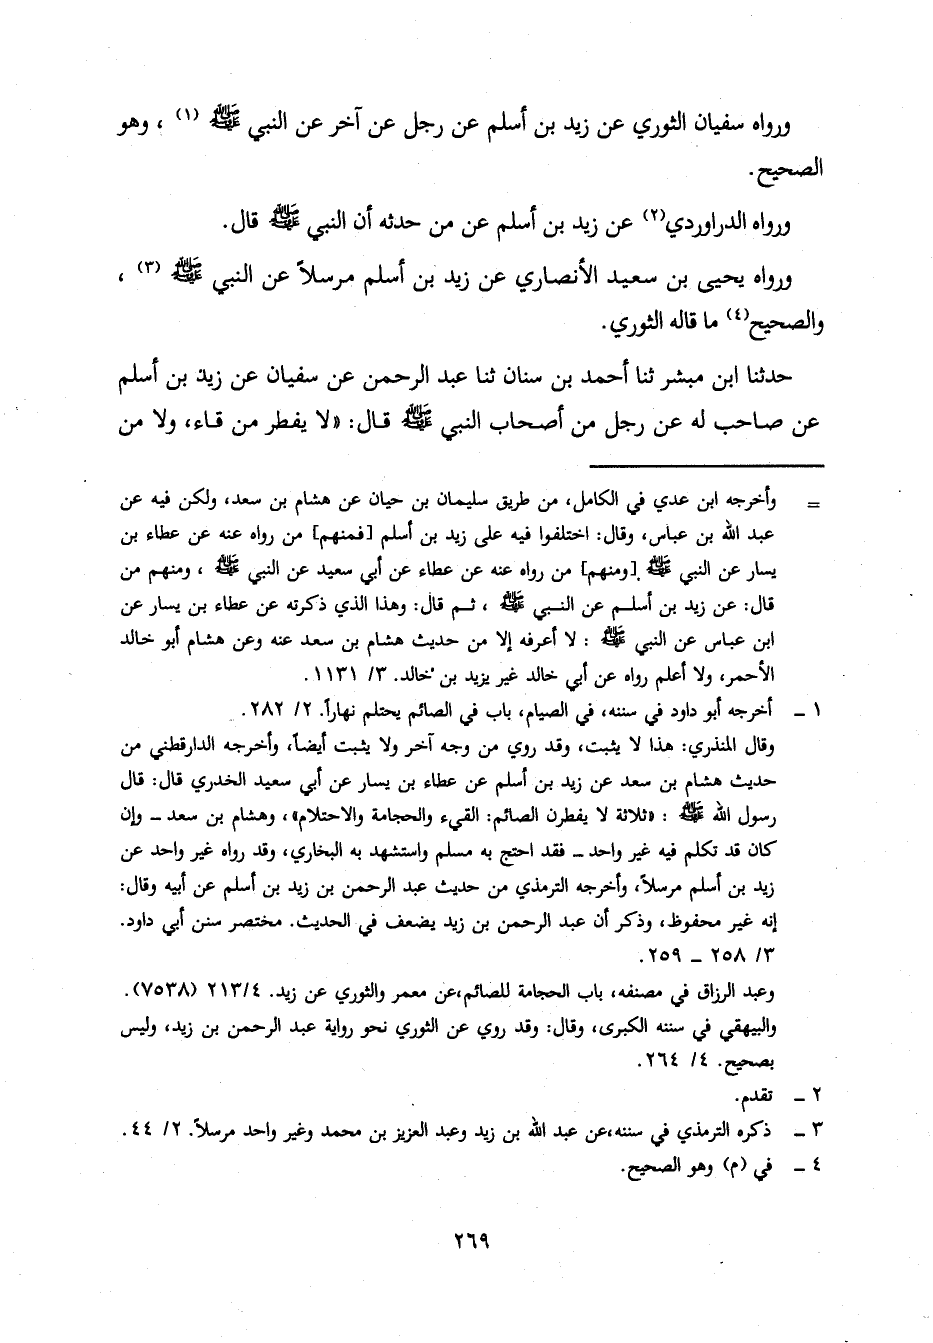 ورواه سفيان الثوري عن زيد بن أسلم عن رجل عن آخر عن النبي ﷺ (١) ، وهو
الصحيح.
ورواه الدراوردي(٢) عن زيد بن أسلم عن من حدثه أن النبي ﷺ قال.
ورواه يحيى بن سعيد الأنصاري عن زيد بن أسلم مرسلاً عن النبي ﷺ (٣) ،
والصحيح(٤) ما قاله الثوري.
حدثنا ابن مبشر ثنا أحمد بن سنان ثنا عبد الرحمن عن سفيان عن زيد بن أسلم
عن صاحب له عن رجل من أصحاب النبي ﷺ قال: «لا يفطر من قاء، ولا من
= وأخرجه ابن عدي في الكامل، من طريق سليمان بن حيان عن هشام بن سعد، ولكن فيه عن
عبد الله بن عباس، وقال: اختلفوا فيه على زيد بن أسلم [فمنهم] من رواه عنه عن عطاء بن
يسار عن النبي ﷺ [ومنهم] من رواه عنه عن عطاء عن أبي سعيد عن النبي ﷺ ، ومنهم من
قال: عن زيد بن أسلم عن النبي ﷺ ، ثم قال: وهذا الذي ذكرته عن عطاء بن يسار عن
ابن عباس عن النبي ﷺ : لا أعرفه إلا من حديث هشام بن سعد عنه وعن هشام أبو خالد
الأحمر، ولا أعلم رواه عن أبي خالد غير يزيد بن خالد. ٣/ ١١٣١.
١ ـ أخرجه أبو داود في سننه، في الصيام، باب في الصائم يحتلم نهاراً. ٢/ ٢٨٢.
وقال المنذري: هذا لا يثبت، وقد روي من وجه آخر ولا يثبت أيضاً، وأخرجه الدارقطني من
حديث هشام بن سعد عن زيد بن أسلم عن عطاء بن يسار عن أبي سعيد الخدري قال: قال
رسول الله ﷺ : «ثلاثة لا يفطرن الصائم: القيء والحجامة والاحتلام»، وهشام بن سعد ـ وإن
كان قد تكلم فيه غير واحد ـ فقد احتج به مسلم واستشهد به البخاري، وقد رواه غير واحد عن
زيد بن أسلم مرسلاً، وأخرجه الترمذي من حديث عبد الرحمن بن زيد بن أسلم عن أبيه وقال:
إنه غير محفوظ، وذكر أن عبد الرحمن بن زيد يضعف في الحديث. مختصر سنن أبي داود.
٣/ ٢٥٨ ـ ٢٥٩.
وعبد الرزاق في مصنفه، باب الحجامة للصائم،عن معمر والثوري عن زيد. ٢١٣/٤ (٧٥٣٨).
والبيهقي في سننه الكبرى، وقال: وقد روي عن الثوري نحو رواية عبد الرحمن بن زيد، وليس
بصحيح. ٤/ ٢٦٤.
٢ ـ تقدم.
٣ ـ ذكره الترمذي في سننه،عن عبد الله بن زيد وعبد العزيز بن محمد وغير واحد مرسلاً. ٢/ ٤٤.
٤ ـ في (م) وهو الصحيح.
٢٦٩